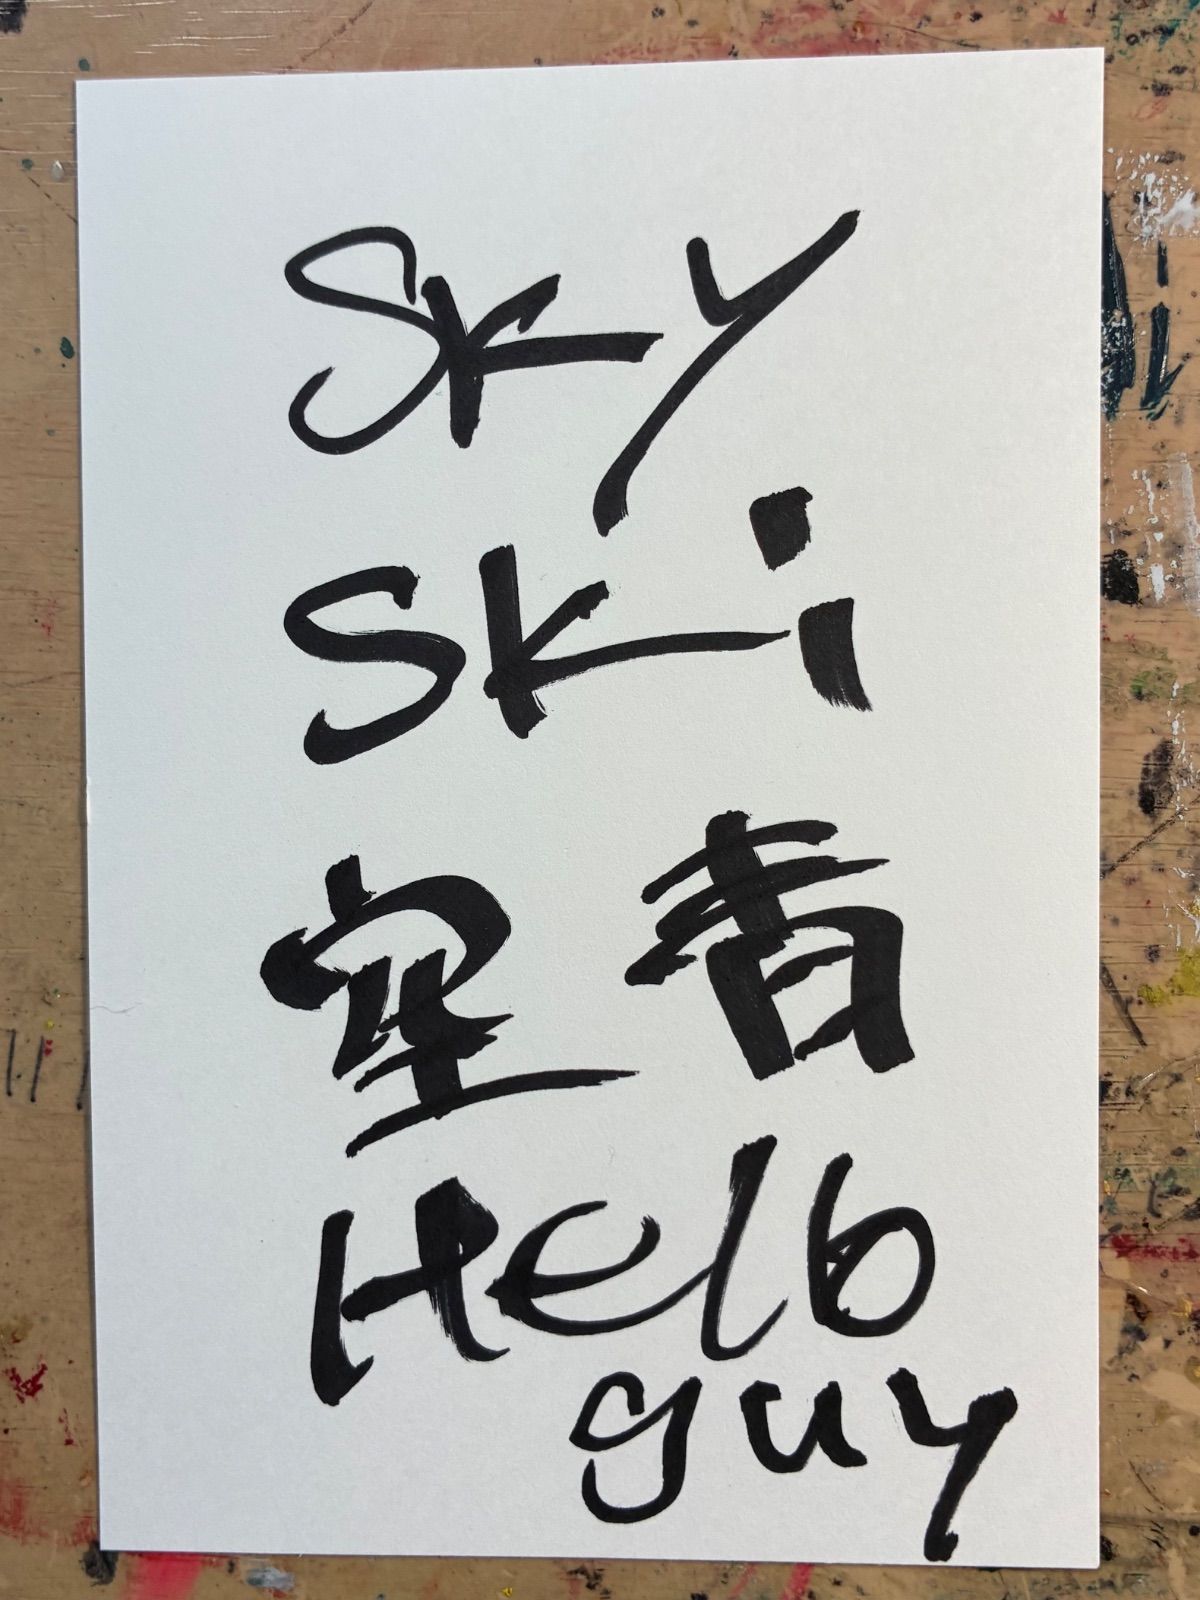 Sky
Ski
空青
Hello
guy